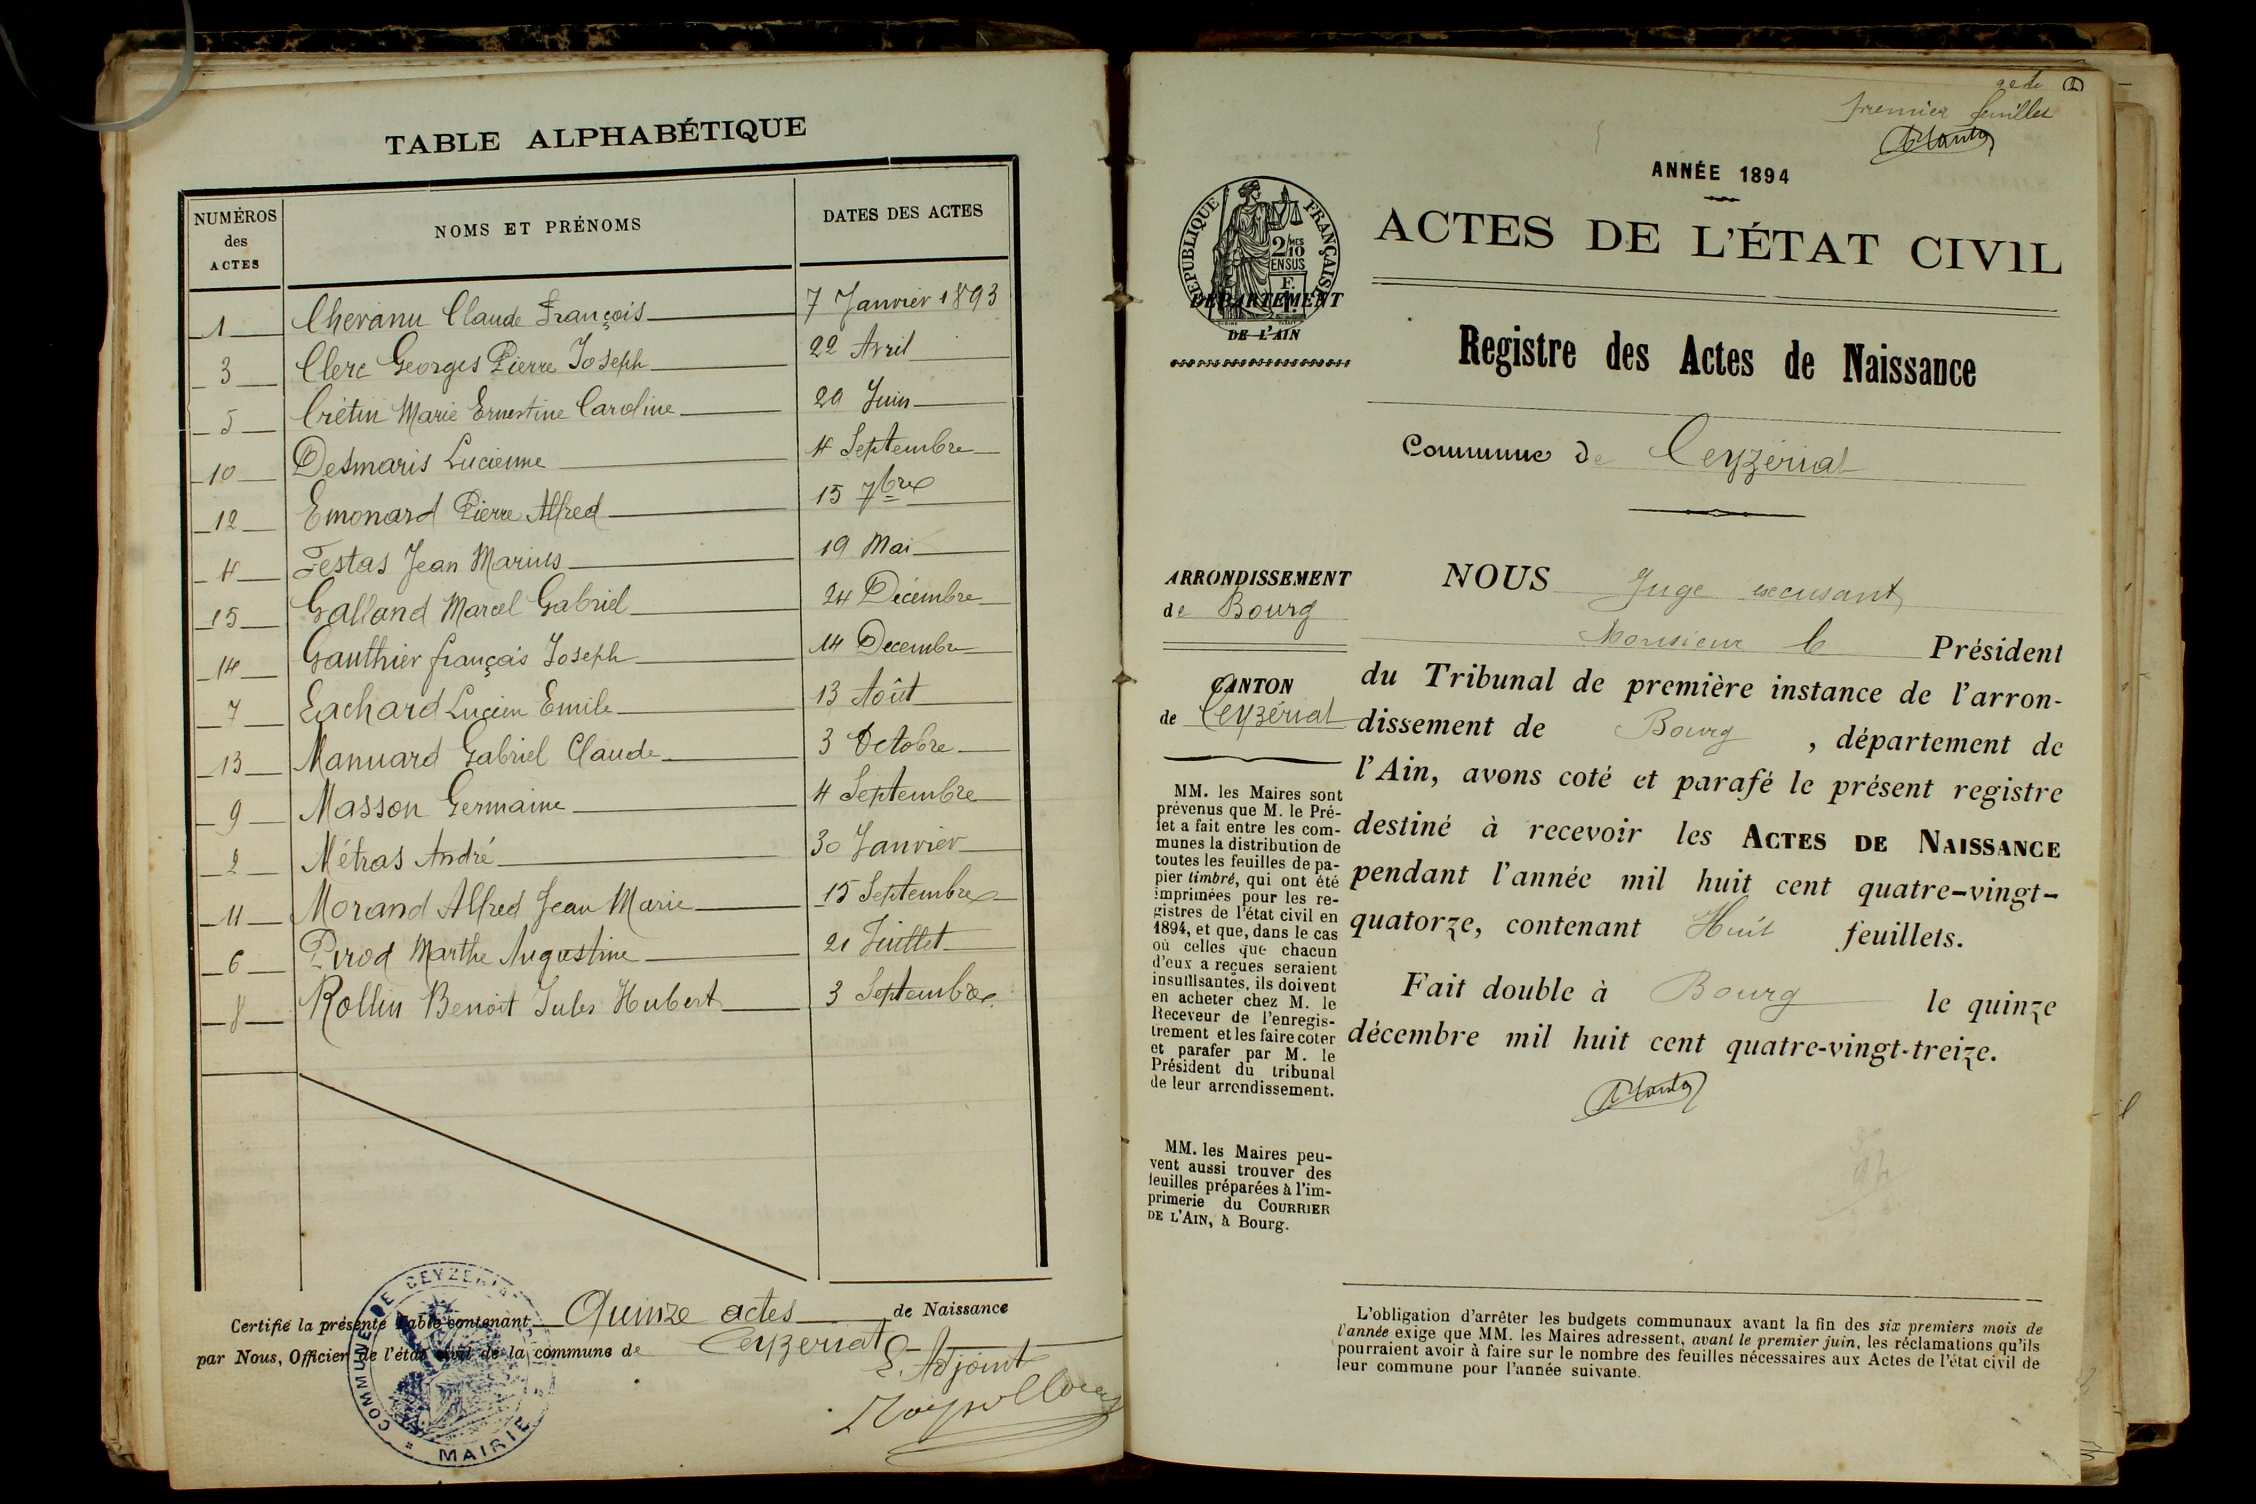 TABLE ALPHABÉTIQUE
NUMÉROS des ACTES NOMS ET PRÉNOMS DATES DES ACTES
1 Chevanu Claude François 7 Janvier 1893
3 Clerc Georges Pierre Joseph 22 Avril
5 Crétin Marie Ernestine Caroline 20 Juin
10 Desmaris Lucienne 4 Septembre
12 Emonard Pierre Alfred 15 7bre
4 Festas Jean Marius 19 Mai
15 Galland Marcel Gabriel 24 Décembre
14 Gauthier françois Joseph 14 Decembre
7 Lachard Lucien Emile 13 Août
13 Manuard Gabriel Claude 3 Octobre
9 Masson Germaine 4 Septembre
2 Métras André 30 Janvier
11 Morand Alfred Jean Marie 15 Septembre
6 Pirod Marthe Augustine 21 Juillet
8 Rollin Benoit Jules Hubert 3 Septembre
Certifié la présente Table contenant Quinze actes de Naissance
par Nous, Officier de l'état civil de la commune de Ceyzeriat
L'Adjoint
COMMUNE DE CEYZERIAT
MAIRIE
premier feuillet
ANNÉE 1894
RÉPUBLIQUE FRANÇAISE
2/10 MES
EN SUS
DÉPARTEMENT
DE L'AIN
ACTES DE L'ÉTAT CIVIL
Registre des Actes de Naissance
Commune de Ceyzériat
ARRONDISSEMENT
de Bourg
CANTON
de Ceyzériat
MM. les Maires sont
prévenus que M. le Pré-
fet a fait entre les com-
munes la distribution de
toutes les feuilles de pa-
pier timbré, qui ont été
imprimées pour les re-
gistres de l'état civil en
1894, et que, dans le cas
où celles que chacun
d'eux a reçues seraient
insuffisantes, ils doivent
en acheter chez M. le
Receveur de l'enregis-
trement et les faire coter
et parafer par M. le
Président du tribunal
de leur arrondissement.
MM. les Maires peu-
vent aussi trouver des
feuilles préparées à l'im-
primerie du COURRIER
DE L'AIN, à Bourg.
NOUS Juge excusant
Monsieur le Président
du Tribunal de première instance de l'arron-
dissement de Bourg, département de
l'Ain, avons coté et parafé le présent registre
destiné à recevoir les ACTES DE NAISSANCE
pendant l'année mil huit cent quatre-vingt-
quatorze, contenant Huit feuillets.
Fait double à Bourg le quinze
décembre mil huit cent quatre-vingt-treize.
L'obligation d'arrêter les budgets communaux avant la fin des six premiers mois de
l'année exige que MM. les Maires adressent, avant le premier juin, les réclamations qu'ils
pourraient avoir à faire sur le nombre des feuilles nécessaires aux Actes de l'état civil de
leur commune pour l'année suivante.